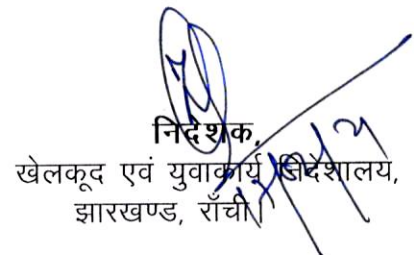 निदेशक,
खेलकूद एवं युवाकार्य निदेशालय,
झारखण्ड, राँची।